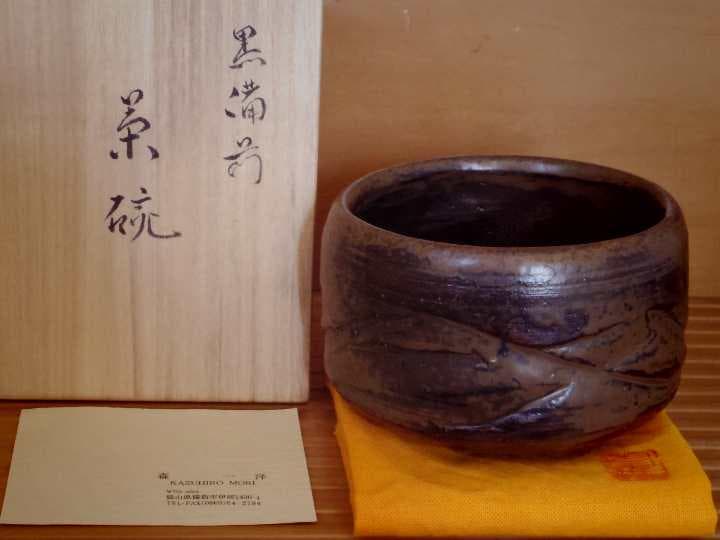 黒備前
茶碗
森 一洋
KAZUHIRO MORI
TEL・FAX(0869)64